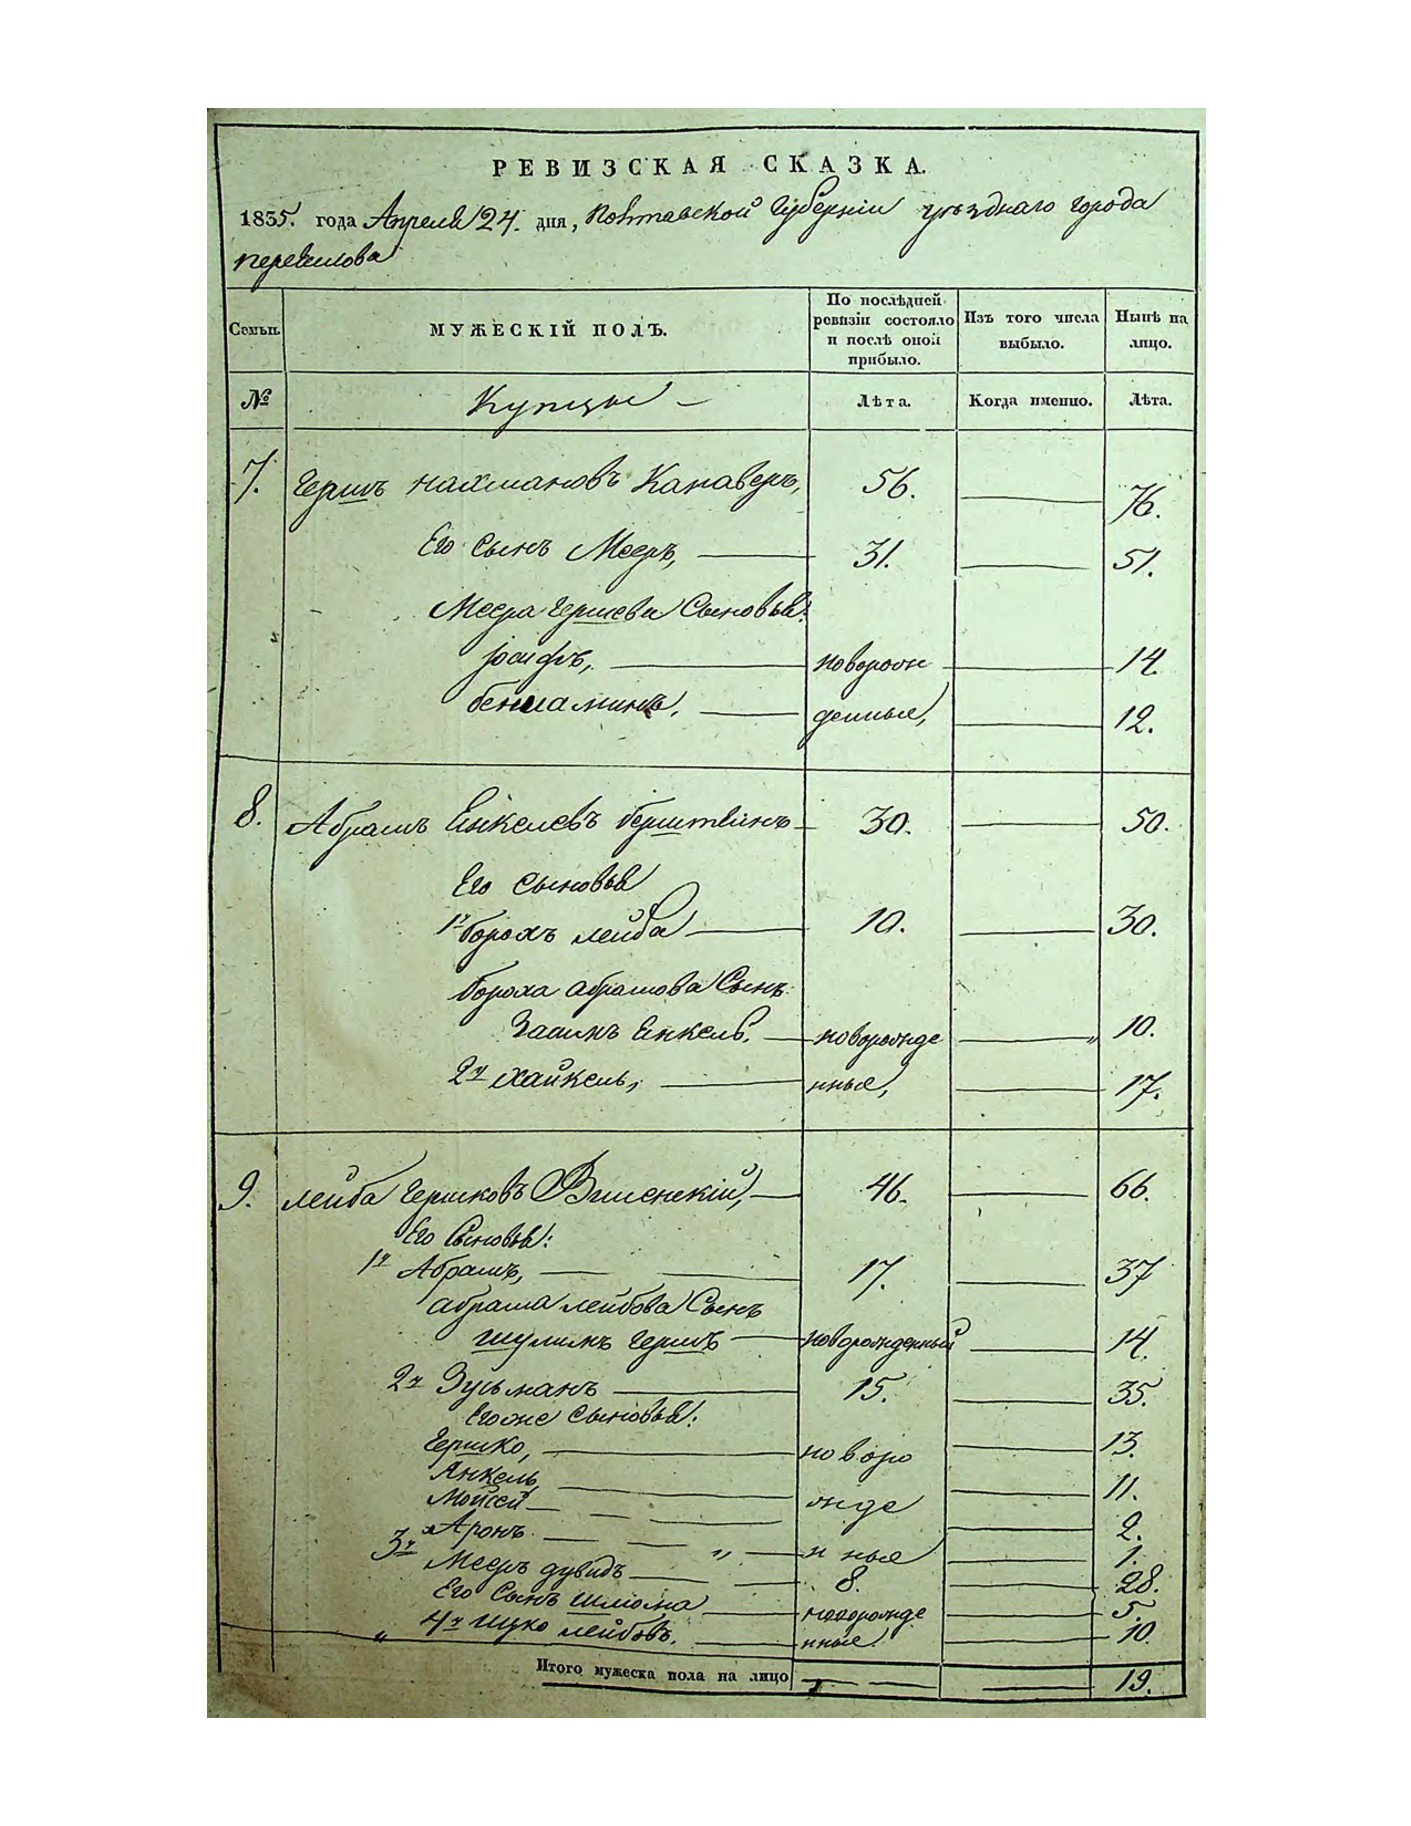 РЕВИЗСКАЯ СКАЗКА.
1835. года Апреля 24. дня, Полтавской Губернiи уѣзднаго города
Семьи. МУЖЕСКIЙ ПОЛЪ. По послѣдней ревизiи состояло и послѣ оной прибыло. Изъ того числа выбыло. Нынѣ на лицо.
№ Купцы Лѣта. Когда именно. Лѣта.
7. Гершъ Нахмановъ 56. 76.
Его сынъ Мееръ, 31. 51.
Меера Гершеви Сыновья:
Iосифъ, новорож 14.
бениаминъ, денные, 12.
8. Абрамъ Енкелевъ берштеинъ 30. 50.
Его сыновья
1й борохъ лейба 10. 30.
бороха абрамова Сынъ
Енкель, новорожде 10.
2й хайкель, нные, 17.
9. лейба Гершковъ 46. 66.
Его Сыновья:
1й Абрамъ, 17. 37
абрама лейбова Сынъ
шулимъ Гершъ новорожденный 14.
2й Зусьманъ 15. 35.
Егоже сыновья:
Гершко, новоро 13.
Янкель 11.
Мойсей жде 2.
Аронъ нные 1.
3й Мееръ дувидъ 8. 28.
Его Сынъ шлюма новорожде 5.
4й Ицко лейбовъ, нные. 10.
Итого мужеска пола на лицо 19.